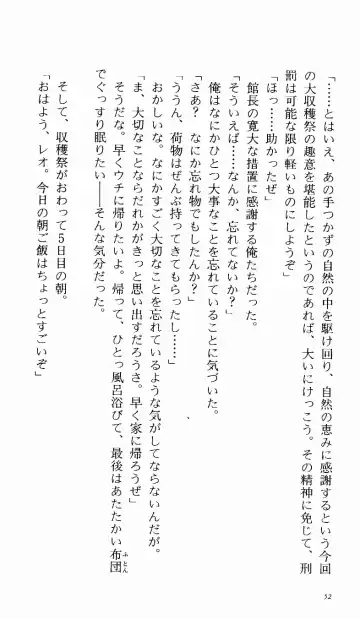 「……とはいえ、あの手つかずの自然の中を駆け回り、自然の恵みに感謝するという今回
の大収穫祭の趣意を堪能したというのであれば、大いにけっこう。その精神に免じて、刑
罰は可能な限り軽いものにしようぞ」
「ほっ……助かったぜ」
館長の寛大な措置に感謝する俺たちだった。
「そういえば……なんか、忘れてないか？」
俺はなにかひとつ大事なことを忘れていることに気づいた。
「さあ？　なにか忘れ物でもしたんか？」
「ううん、荷物はぜんぶ持ってきてもらったし……」
おかしいな。なにかすごく大切なことを忘れているような気がしてならないんだが。
「ま、大切なことならだれかがきっと思い出すだろうさ。早く家に帰ろうぜ」
そうだな。早くウチに帰りたいよ。帰って、ひとっ風呂浴びて、最後はあたたかい布団
ふとん
でぐっすり眠りたい――そんな気分だった。
そして、収穫祭がおわって５日目の朝。
「おはよう、レオ。今日の朝ご飯はちょっとすごいぞ」
52